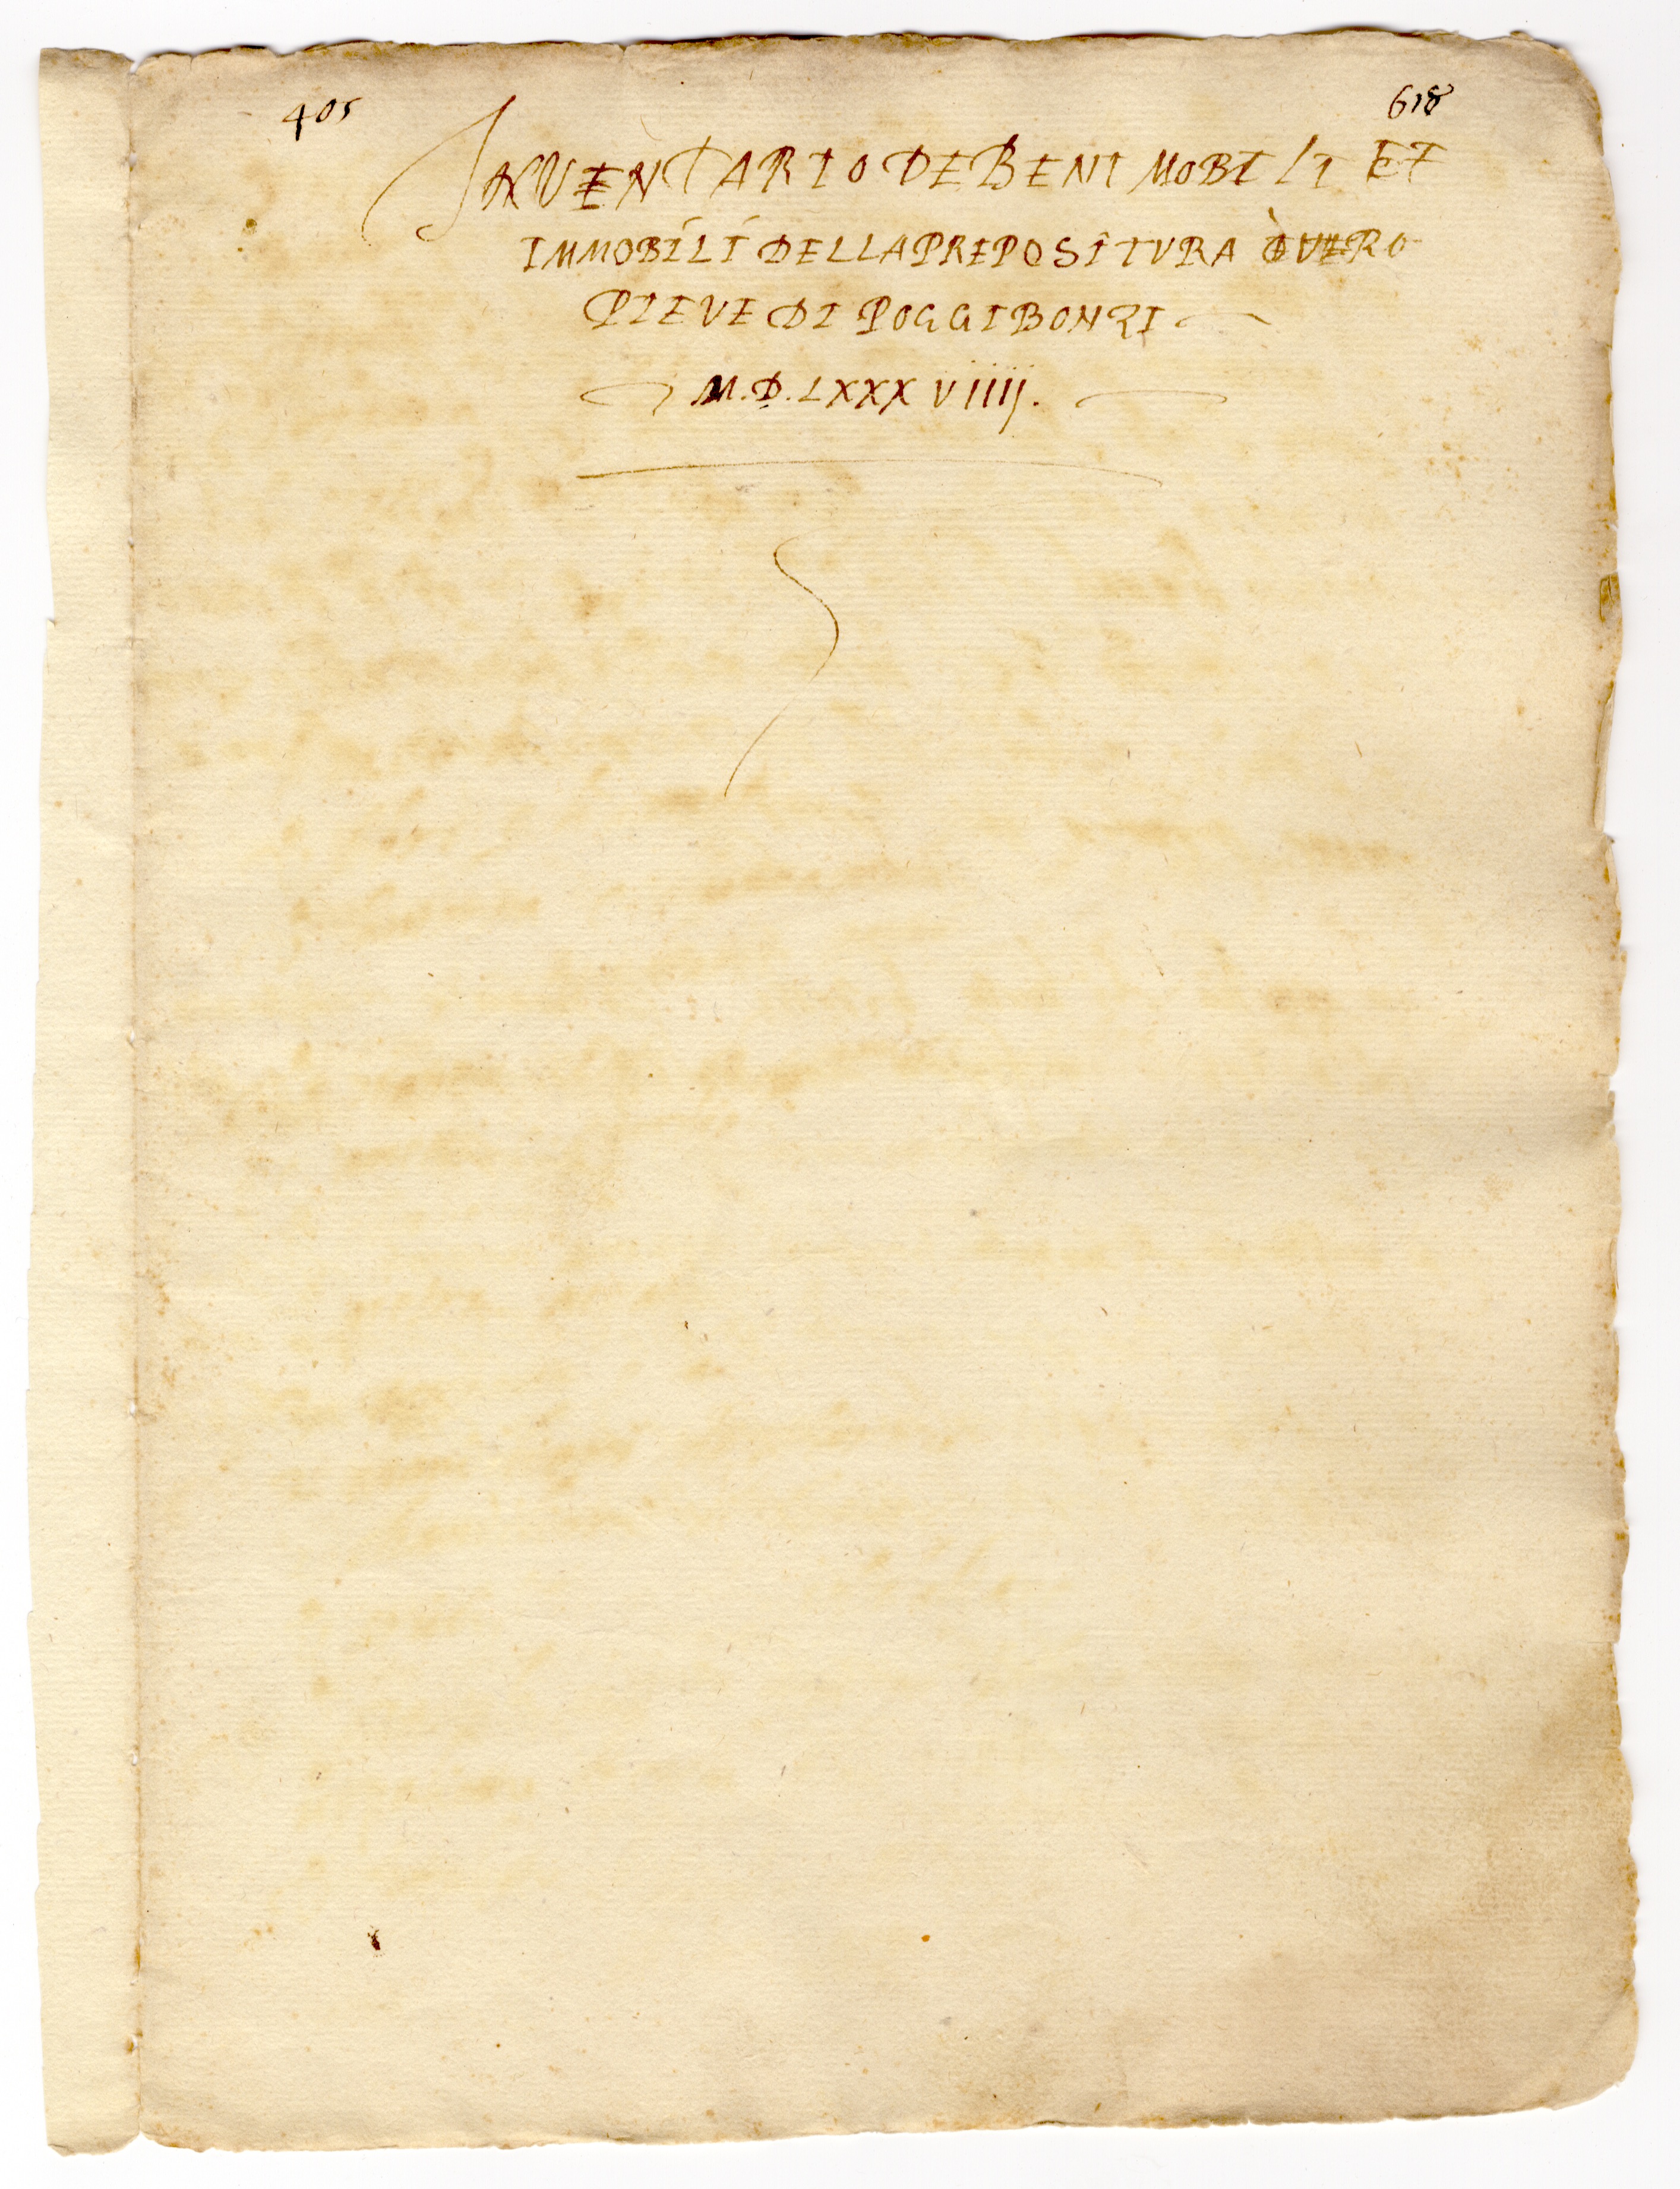 405
618
INVENTARIO DE BENI MOBILI ET
IMMOBÍLÍ DELLA PREPOSITVRA ÒVERO
PIEVE DI POGGIBONZI
M.D.LXXXVIIIJ.